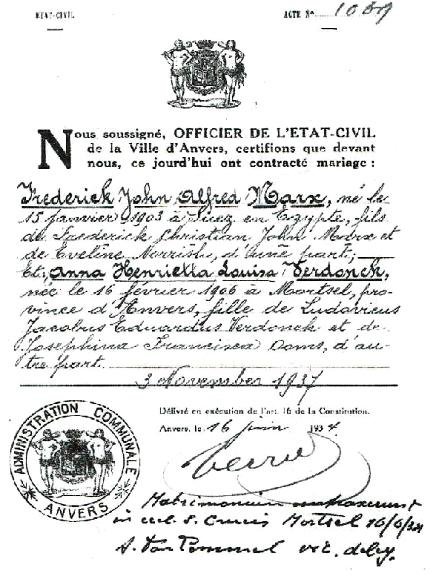 ETAT-CIVIL
ACTE No
Nous soussigné, OFFICIER DE L'ETAT-CIVIL
de la Ville d'Anvers, certifions que devant
nous, ce jourd'hui ont contracté mariage :
Frederick John Alfred Marx, né le
15 janvier 1903 à Suez en Egypte, fils
de Frederick Christian John Marx et
de Eveline Morrish, d'une part,
Et, Anna Henrietta Louisa Verdonck,
née le 16 février 1906 à Mortsel, pro-
vince d'Anvers, fille de Ludovicus
Jacobus Eduardus Verdonck et de
Josephina Francisca Doms, d'au-
tre part.
3 November 1937
Délivré en exécution de l'art. 16 de la Constitution.
Anvers, le 16 juin 193
ADMINISTRATION COMMUNALE
ANVERS
Matrimonium
in eccl. S. Crucis Mortsel